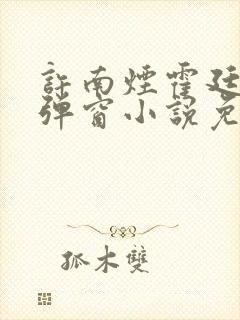 許南煙霍廷
彈窗小說免
孤木雙